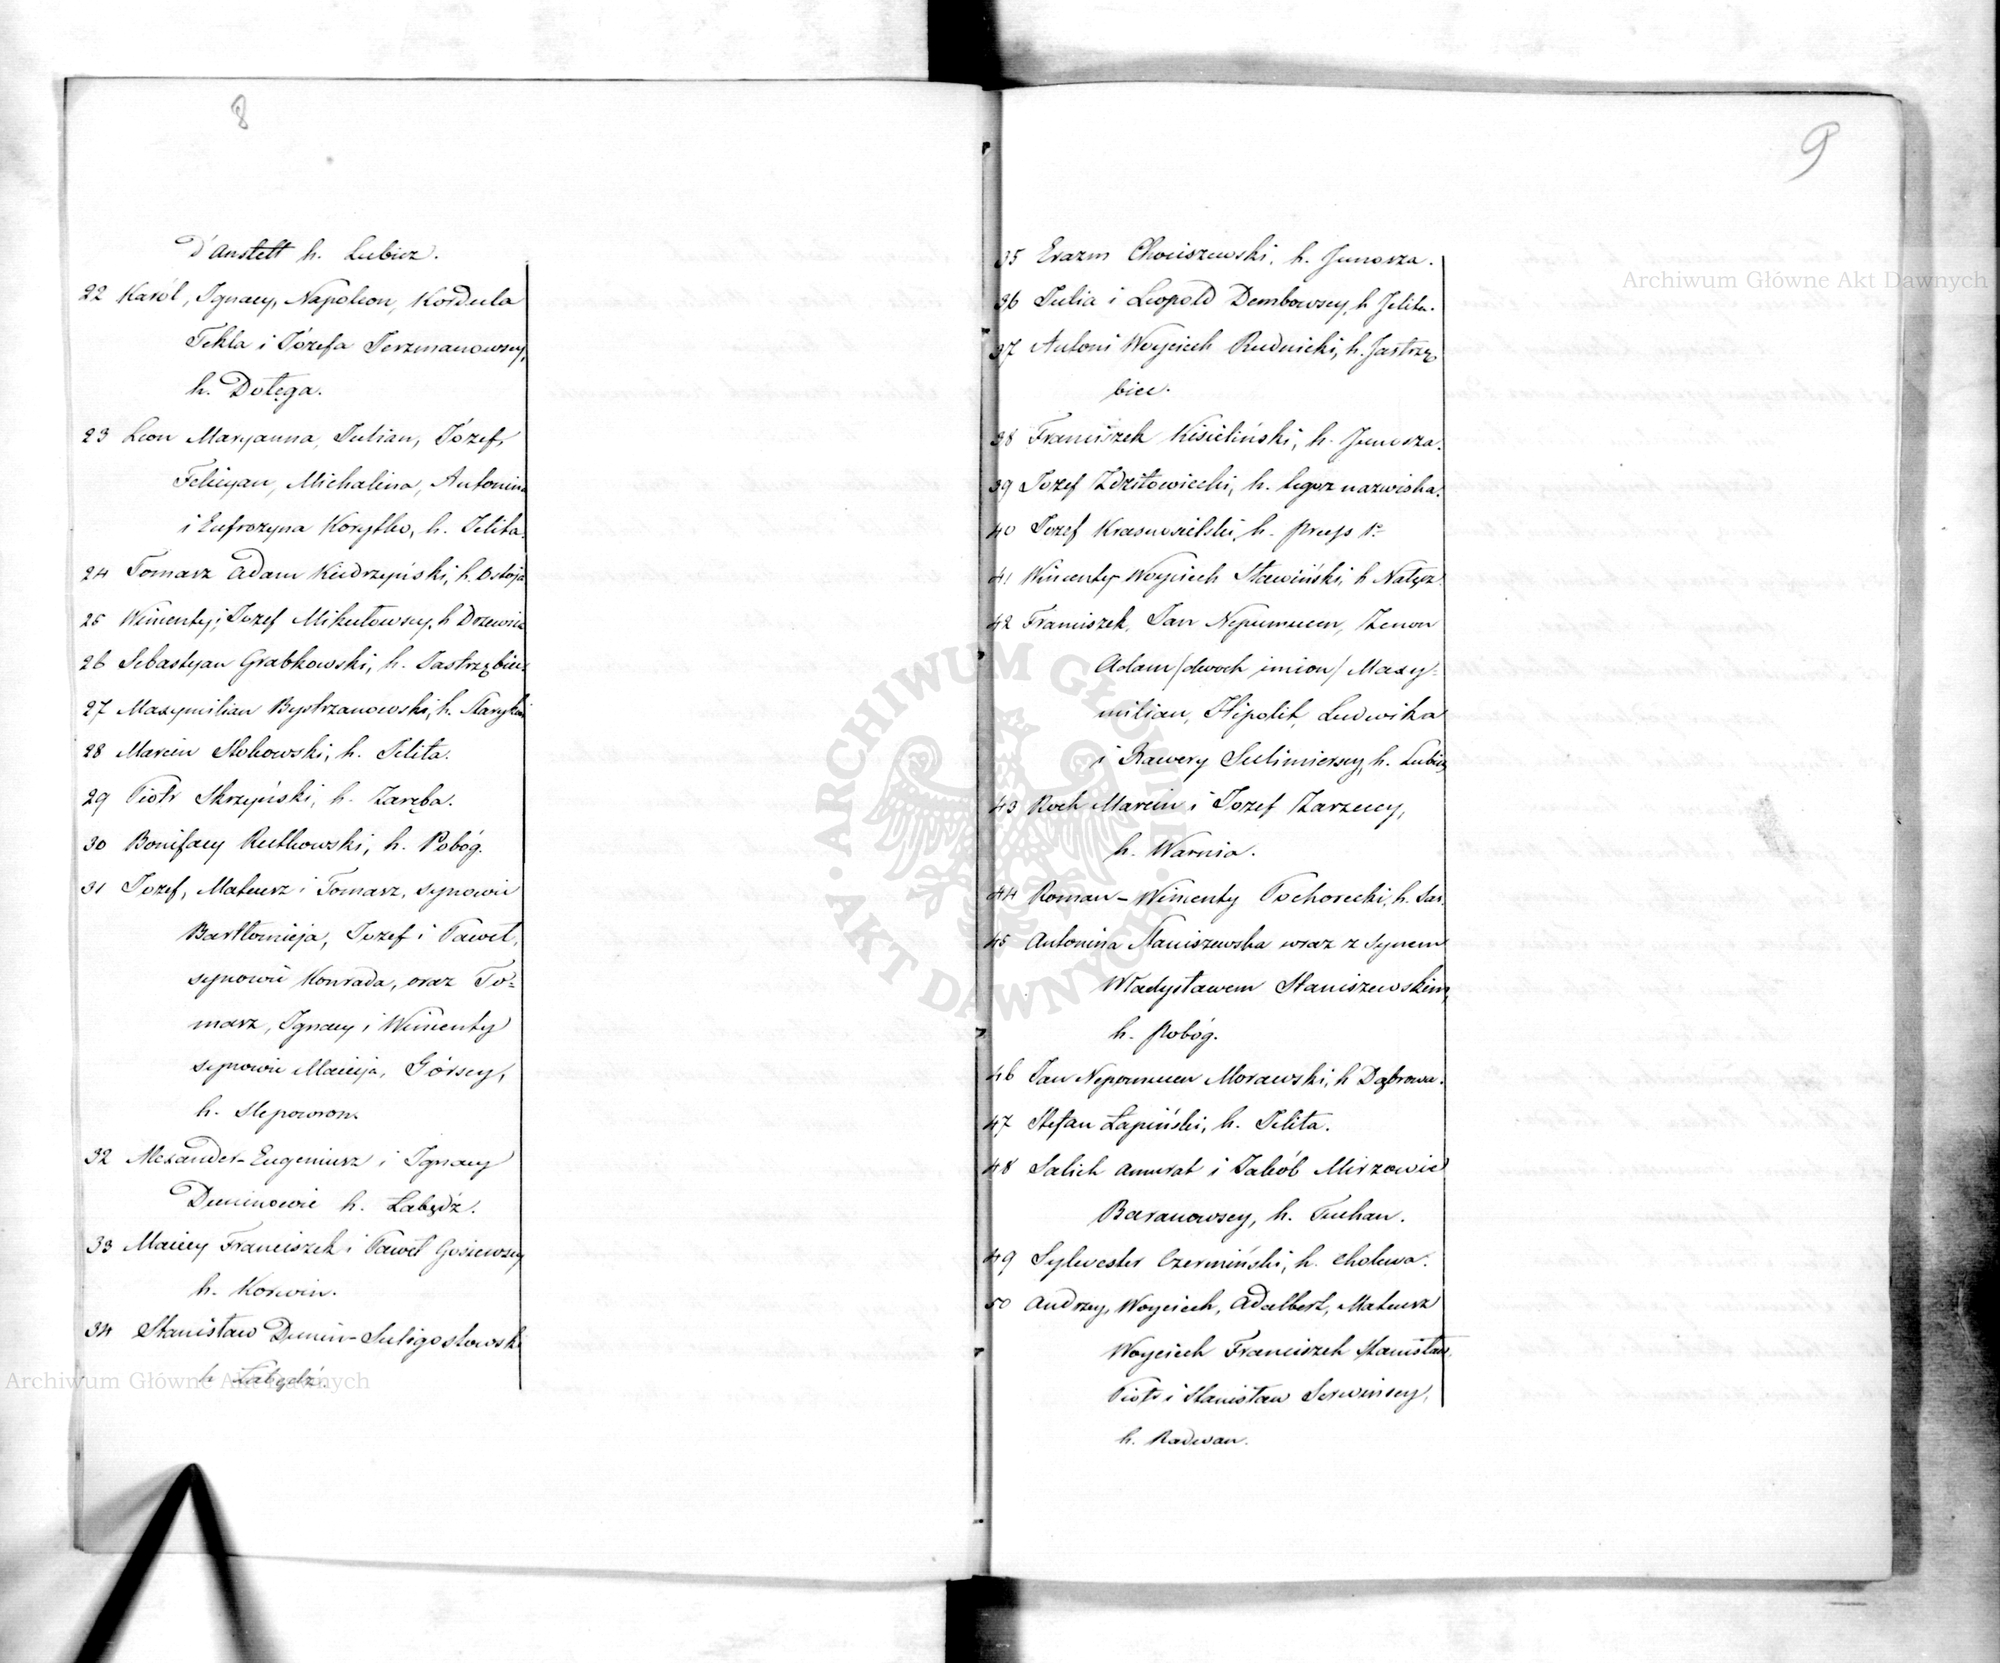 8
d'Anstett h. Lubicz.
22 Karól, Ignacy, Napoleon, Kordula
Tekla i Józefa Jerzmanowscy,
h. Dołęga.
23 Leon Maryanna, Julian, Józef,
Felicyan, Michalina, Antonina
i Eufrozyna Korytko, h. Jelita.
24 Tomasz Adam Kiedrzyński, h. Ostoja
25 Wincenty i Jozef Mikułowscy, h Drzewica
26 Sebastyan Grabkowski, h. Jastrzębiec
27 Maxymilian Bystrzanowski, h. Starykoń
28 Marcin Słokowski, h. Jelita.
29 Piotr Skrzyński, h. Zaręba.
30 Bonifacy Rutkowski, h. Pobóg.
31 Jozef, Mateusz i Tomasz, synowie
Bartłomieja, Jozef i Paweł,
synowie Konrada, oraz To-
masz, Ignacy i Wincenty
synowie Macieja, Górscy,
h. Slepowron.
32 Alexander-Eugeniusz i Ignacy
Duninowie h. Łabędź.
33 Maciey Franciszek i Paweł Gosiewscy
h. Korwin.
34 Stanisław Dunin-Suligostowski
h Łabędź.
9
35 Erazm Chociszewski, h. Junosza.
36 Julia i Leopold Dembowscy, h Jelita.
37 Antoni Woyciech Rudnicki, h. Jastrzę-
biec.
38 Franciszek Kisieliński, h. Junosza.
39 Jozef Zdziłowiecki, h. tegoz nazwiska.
40 Jozef Krasnosielski, h.
41 Wincenty Woyciech Sławiński, h Nałęcz.
42 Franciszek, Jan Nepumucen, Zenon
Adam /dwoch imion/ Maxy-
milian, Hipolit, Ludwika
i Xawery Sulimierscy, h. Lubicz
43 Roch Marcin i Jozef Zarzeccy,
h. Warnia.
44 Roman-Wincenty Tochorecki, h. Sas.
45 Antonina Staniszewska wraz z synem
Władysławem Staniszewskim,
h. Pobóg.
46 Jan Nepomucen Morawski, h Dąbrowa.
47 Stefan Łapiński, h. Jelita.
48 Salich Amurat i Jakób Mirzowie
Baranowscy, h. Tuhan.
49 Sylwester Czermiński, h. Cholewa.
50 Andrzey, Woyciech, Adalbert, Mateusz
Woyciech Franciszek Stanisław,
Piotr i Stanisław Serwińscy,
h. Radwan.
Archiwum Główne Akt Dawnych
Archiwum Główne Akt Dawnych
· ARCHIWUM GŁÓWNE · AKT DAWNYCH ·